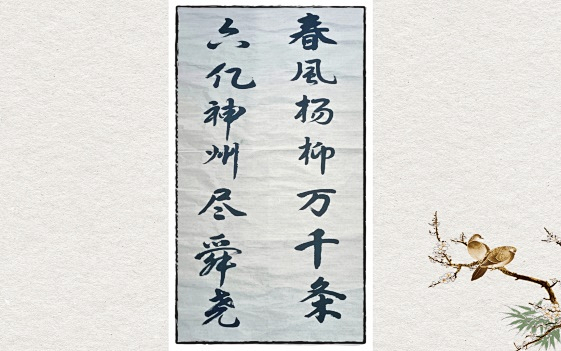 春风杨柳万千条
六亿神州尽舜尧